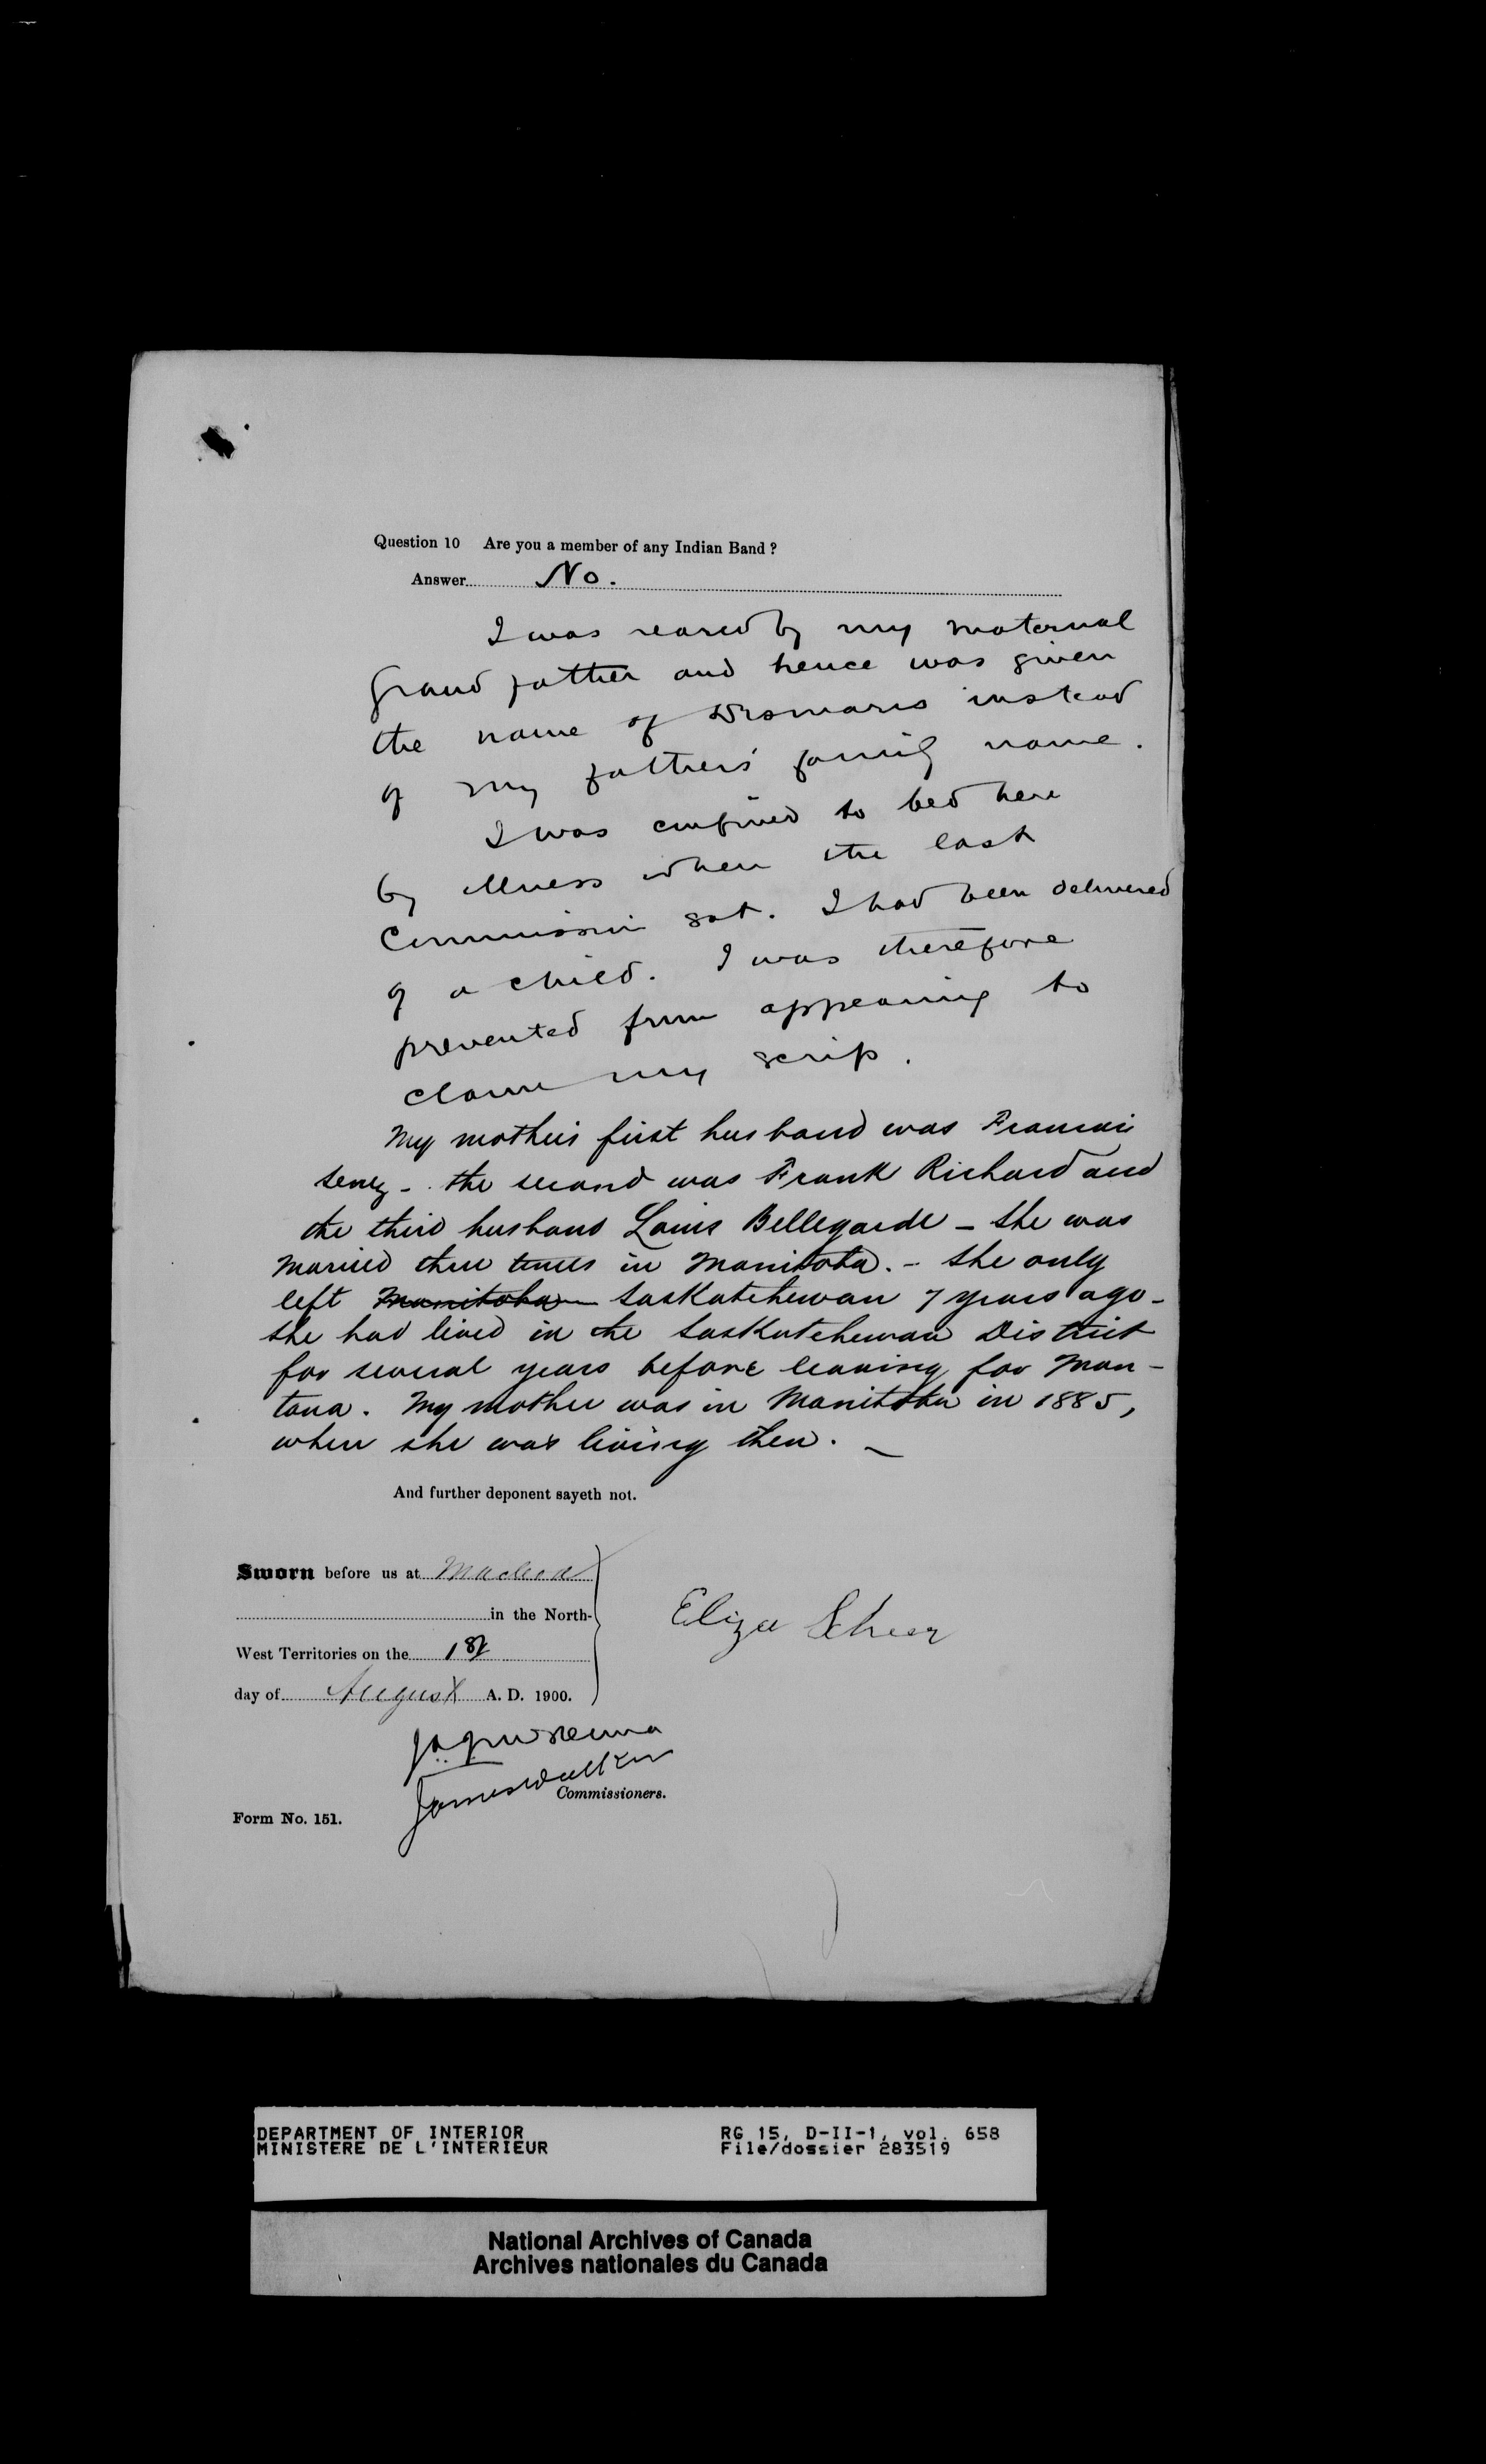 Question 10 Are you a member of any Indian Band ?
Answer No.
I was reared by my maternal
Grand father and hence was given
the name of Desmaris instead
of my fathers' family name.
I was confined to bed here
by illness when the last
Commission sat. I had been delivered
of a child. I was therefore
prevented from appearing to
claim my scrip.
My mother's first husband was
the second was Frank Richard and
the third husband Louis Bellegarde - She was
married three times in Manitoba. - She only
left Manitoba Saskatchewan 7 years ago -
She had lived in the Saskatchewan District
for several years before leaving for Mon-
tana. My mother was in Manitoba in 1885,
when she was living then. -
And further deponent sayeth not.
Sworn before us at Macleod
in the North-
West Territories on the 1st
day of August A. D. 1900.
Eliza Scheer
James Walker
Commissioners.
Form No. 151.
DEPARTMENT OF INTERIOR
MINISTERE DE L'INTERIEUR
RG 15, D-II-1, vol. 658
File/dossier 283519
National Archives of Canada
Archives nationales du Canada